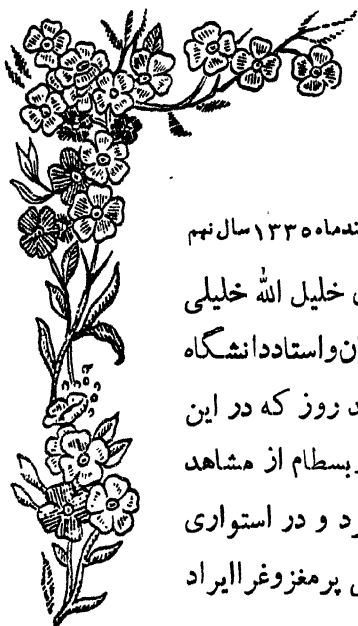 ندماه ۱۳۳۵ سال نهم
خلیل الله خلیلی
ن و استاد دانشگاه
د روز که در این
بسطام از مشاهد
رد و در استواری
پر مغز و غرا ایراد